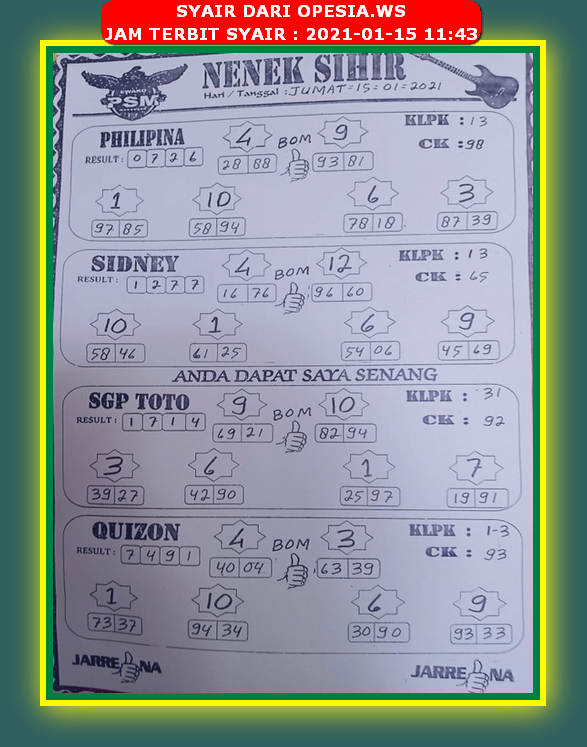 SYAIR DARI OPESIA.WS
JAM TERBIT SYAIR : 2021-01-15 11:43
EWAKO
PSM
NENEK SIHIR
Hari / Tanggal : JUMAT=15=01=2021
PHILIPINA 4 BOM 9 KLPK : 13
RESULT : 0 7 2 6 28 88 93 81 CK : 98
1 10 6 3
97 85 58 94 78 18 87 39
SIDNEY 4 BOM 12 KLPK : 13
RESULT : 1 2 7 7 16 76 96 60 CK : 65
10 1 6 9
58 46 61 25 54 06 45 69
ANDA DAPAT SAYA SENANG
SGP TOTO 9 BOM 10 KLPK : 31
RESULT : 1 7 1 4 69 21 82 94 CK : 92
3 6 1 7
39 27 42 90 25 97 19 91
QUIZON 4 BOM 3 KLPK : 1-3
RESULT : 7 4 9 1 40 04 63 39 CK : 93
1 10 6 9
73 37 94 34 30 90 93 33
JARRE NA JARRE NA